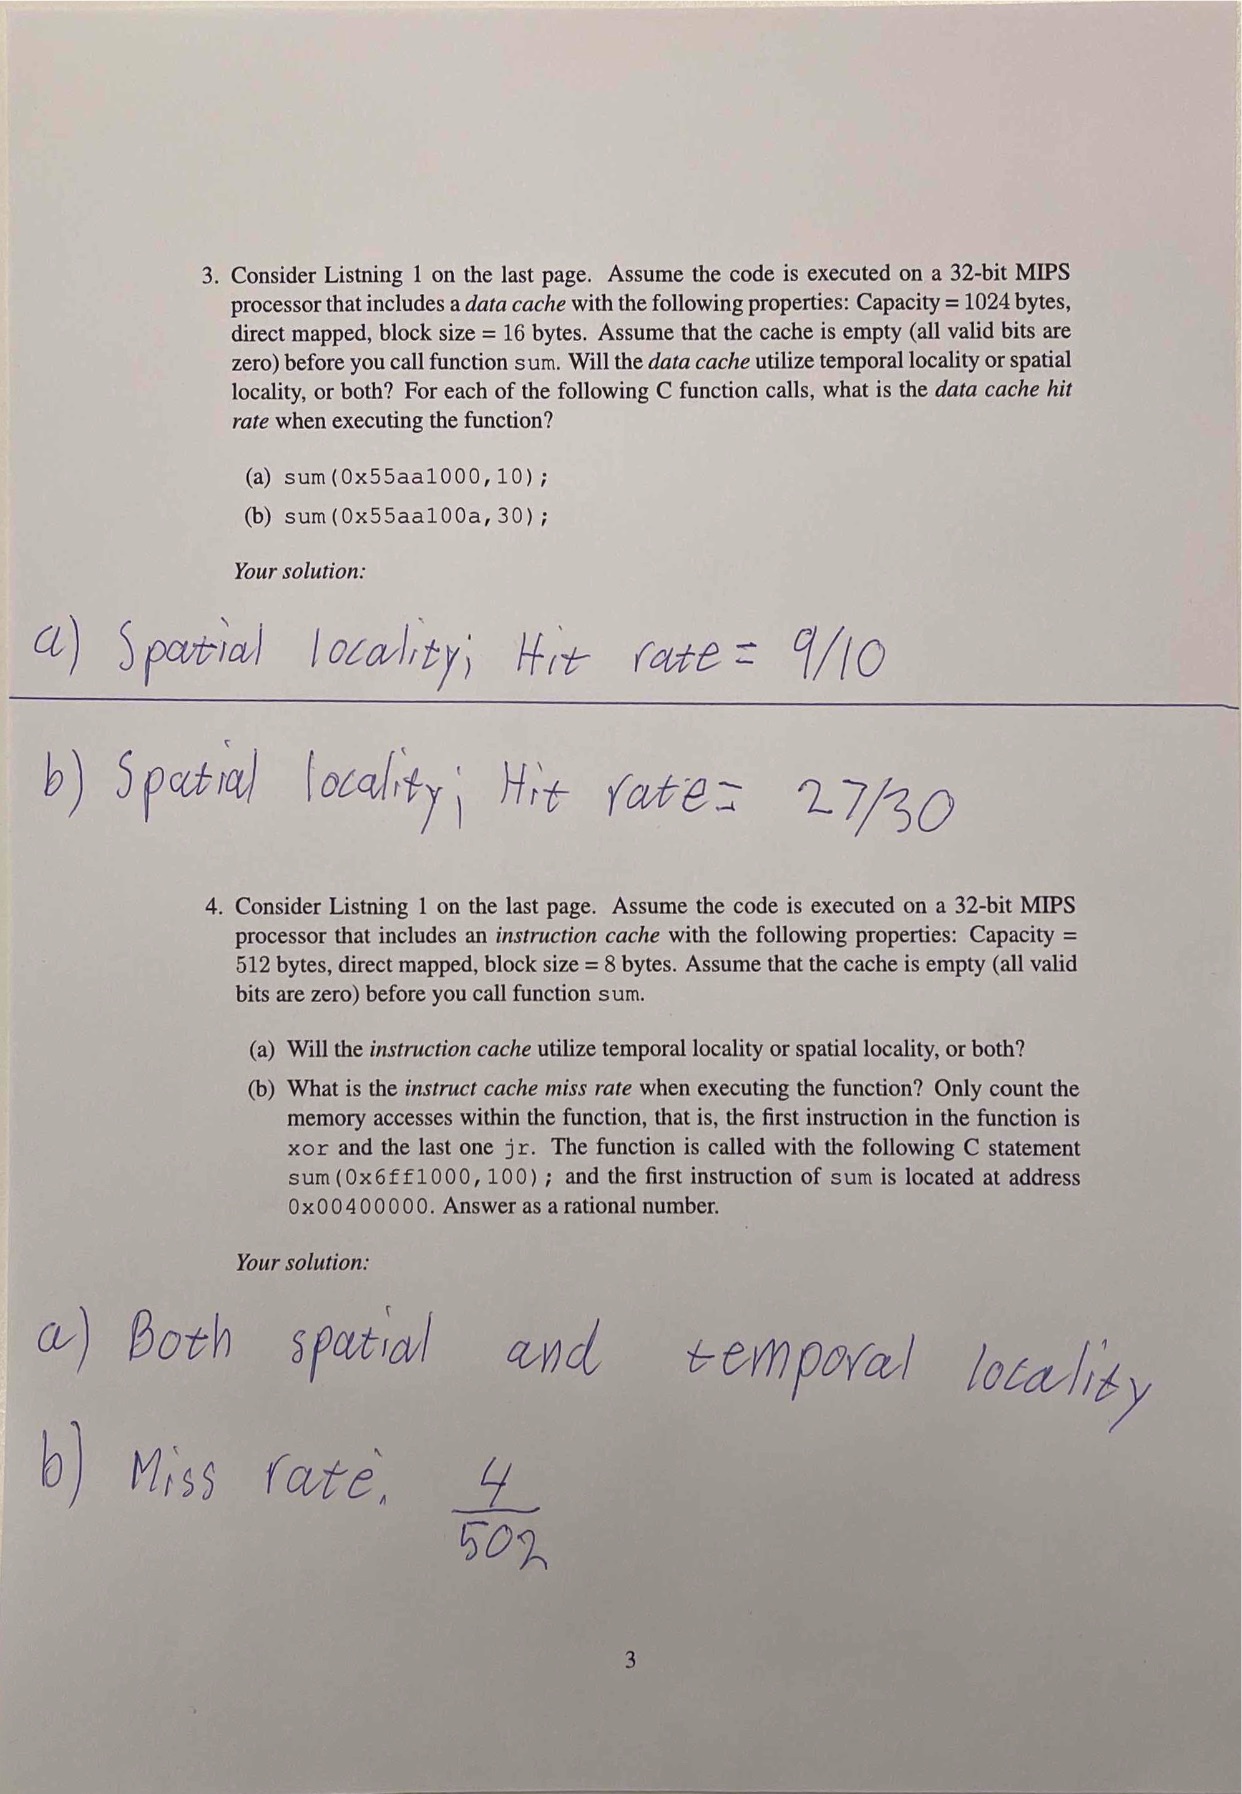 3. Consider Listning 1 on the last page. Assume the code is executed on a 32-bit MIPS
processor that includes a data cache with the following properties: Capacity = 1024 bytes,
direct mapped, block size = 16 bytes. Assume that the cache is empty (all valid bits are
zero) before you call function sum. Will the data cache utilize temporal locality or spatial
locality, or both? For each of the following C function calls, what is the data cache hit
rate when executing the function?
(a) sum(0x55aa1000,10);
(b) sum(0x55aa100a,30);
Your solution:
a) Spatial locality; Hit rate = 9/10
b) Spatial locality; Hit rate = 27/30
4. Consider Listning 1 on the last page. Assume the code is executed on a 32-bit MIPS
processor that includes an instruction cache with the following properties: Capacity =
512 bytes, direct mapped, block size = 8 bytes. Assume that the cache is empty (all valid
bits are zero) before you call function sum.
(a) Will the instruction cache utilize temporal locality or spatial locality, or both?
(b) What is the instruct cache miss rate when executing the function? Only count the
memory accesses within the function, that is, the first instruction in the function is
xor and the last one jr. The function is called with the following C statement
sum(0x6ff1000,100); and the first instruction of sum is located at address
0x00400000. Answer as a rational number.
Your solution:
a) Both spatial and temporal locality
b) Miss rate: 4/502
3